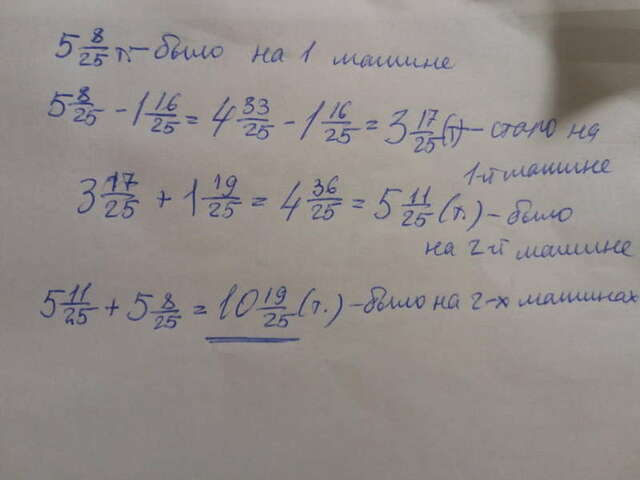 5 8/25 т. - было на 1 машине
5 8/25 - 1 16/25 = 4 33/25 - 1 16/25 = 3 17/25 (т) - стало на
1-й машине
3 17/25 + 1 19/25 = 4 36/25 = 5 11/25 (т.) - было
на 2-й машине
5 11/25 + 5 8/25 = 10 19/25 (т.) - было на 2-х машинах